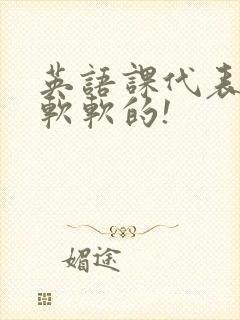 英語課代表
軟軟的!
媚途